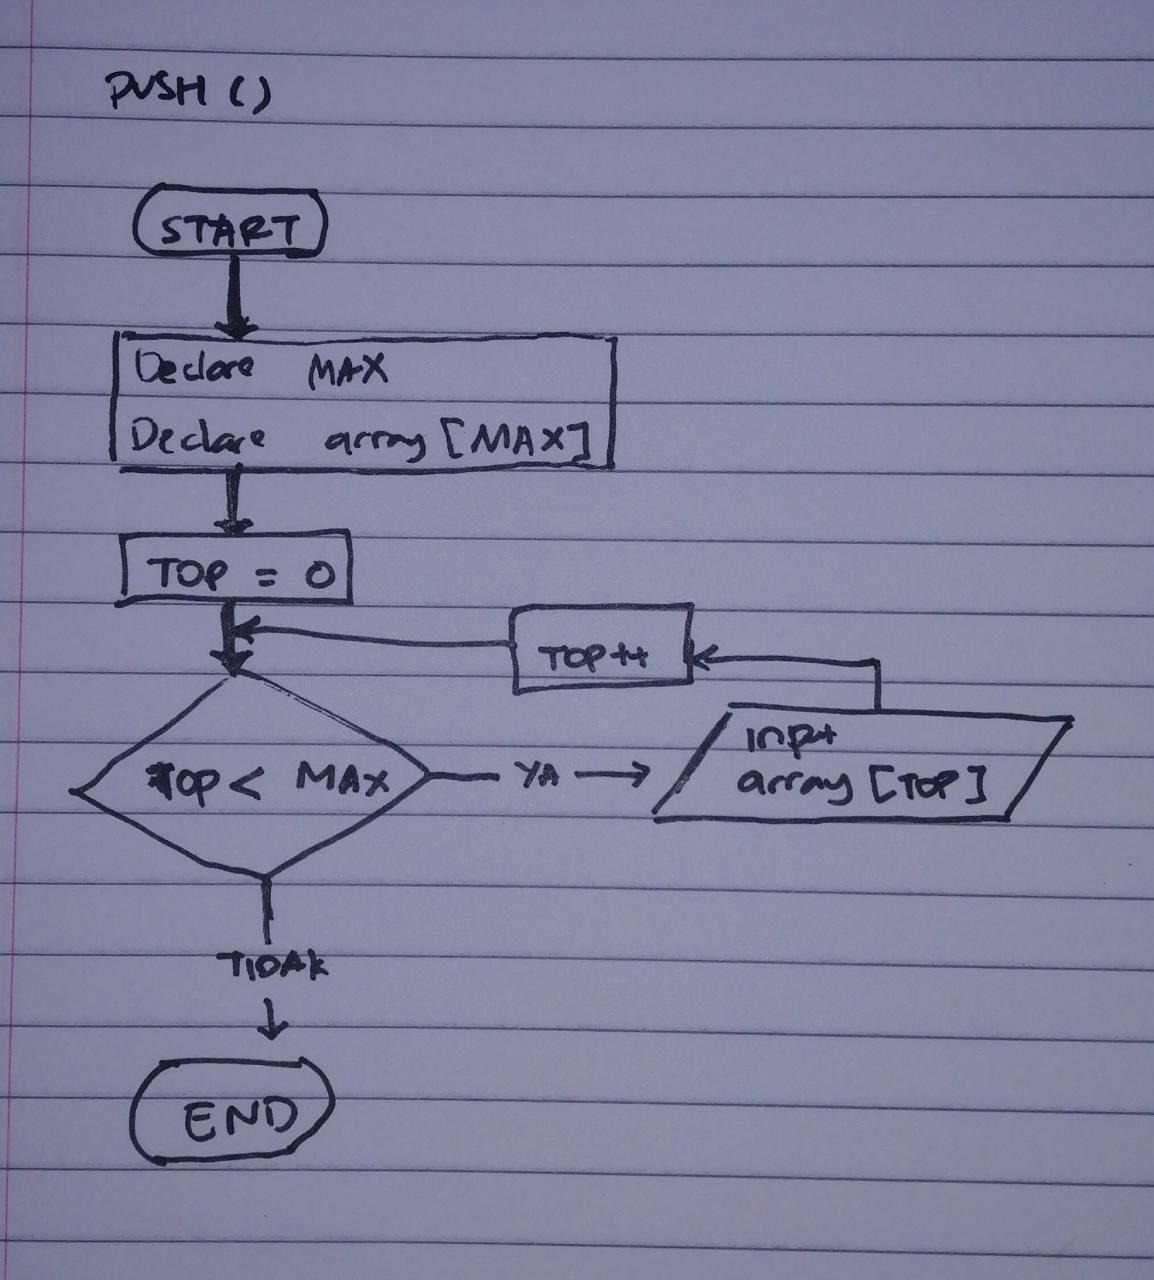 PUSH ()
START
Declare MAX
Declare array [MAX]
TOP = 0
TOP++
TOP < MAX
YA
input
array [TOP]
TIDAK
END